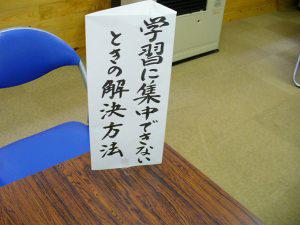 学習に集中できない
ときの解決方法